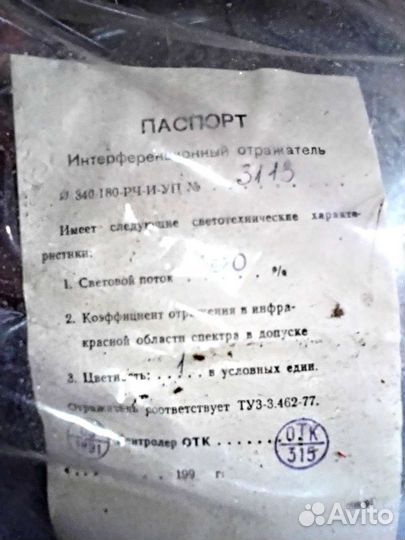 ПАСПОРТ
Интерференционный отражатель
Ø 340-180-РЧ-И-УП № 3113
Имеет следующие светотехнические характе-
ристики:
1. Световой поток %
2. Коэффициент отражения в инфра-
красной области спектра в допуске
3. Цветность: . 1 . . . . в условных един.
Отражатель соответствует ТУ3-3.462-77.
Контролер ОТК . . . . . .
ОТК
315
199 г.
Avito